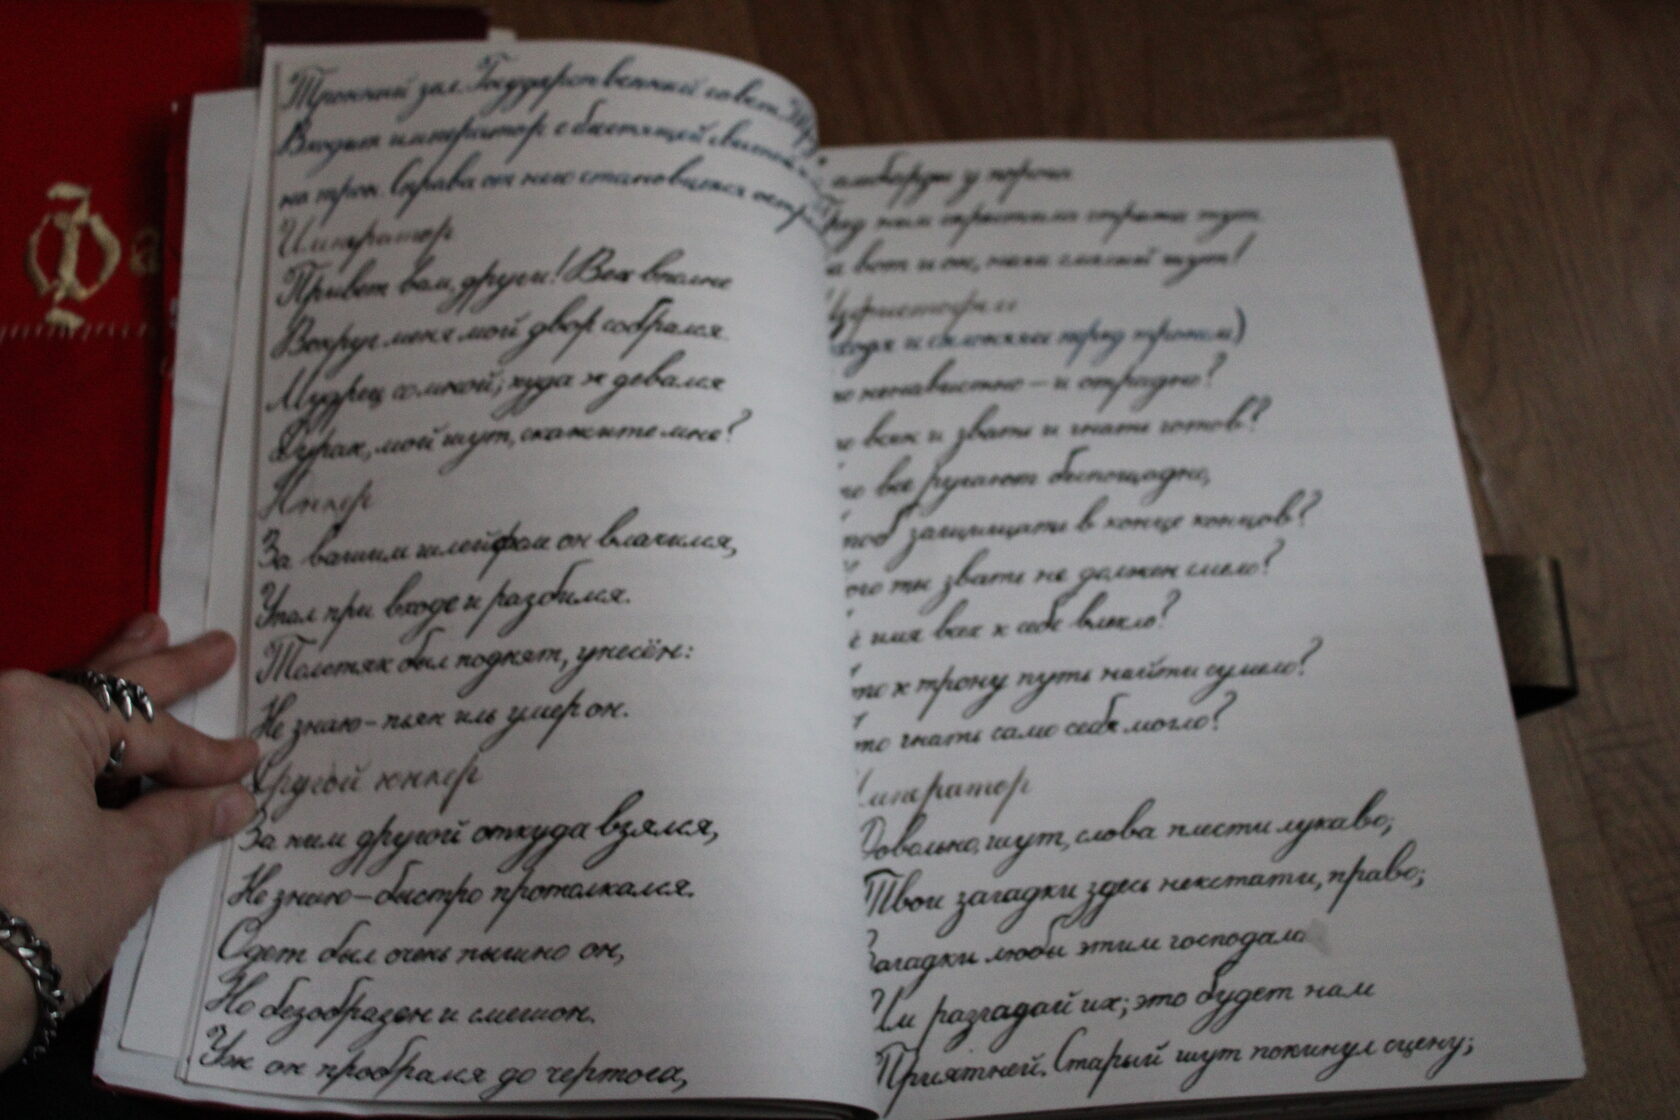 Фа
Тронный зал. Государственный совет.
Входит император с блестящей свитой и
на трон. Справа от него становится астр
Император
Привет вам, други! Всех вполне
Вокруг меня мой двор собрался.
Мудрец со мной; куда ж девался
Дурак, мой шут, скажите мне?
Юнкер
За вашим шлейфом он влачился,
Упал при входе и разбился.
Толстяк был поднят, унесён:
Не знаю – пьян иль умер он.
Другой юнкер
За ним другой откуда взялся,
Не знаю – быстро протолкался.
Одет был очень пышно он,
Но безобразен и смешон.
Уж он пробрался до чертога,
алебарды у порога
Пред ним скрестила стража тут.
а вот и он, наш смелый шут!
Мефистофель
ходя и склоняясь перед троном)
то ненавистно – и отрадно?
го всяк и звать и гнать готов?
го все ругают беспощадно,
тоб защищать в конце концов?
ого ты звать не должен смело?
ё имя всех к себе влекло?
то к трону путь найти сумело?
то гнать само себя могло?
Император
Довольно, шут, слова плести лукаво;
Твои загадки здесь некстати, право;
Загадки любы этим господа
Им разгадай их; это будет нам
Приятней. Старый шут покинул сцену;